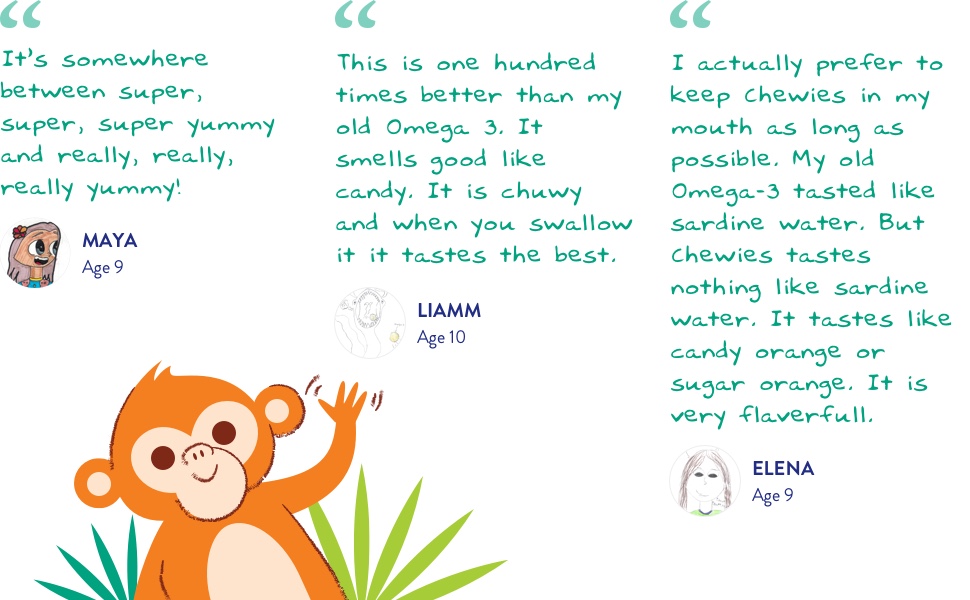 “
It's somewhere
between super,
super, super yummy
and really, really,
really yummy!
MAYA
Age 9
“
This is one hundred
times better than my
old Omega 3. It
smells good like
candy. It is chuwy
and when you swallow
it it tastes the best.
LIAMM
Age 10
“
I actually prefer to
keep Chewies in my
mouth as long as
possible. My old
Omega-3 tasted like
sardine water. But
Chewies tastes
nothing like sardine
water. It tastes like
candy orange or
sugar orange. It is
very flaverfull.
ELENA
Age 9